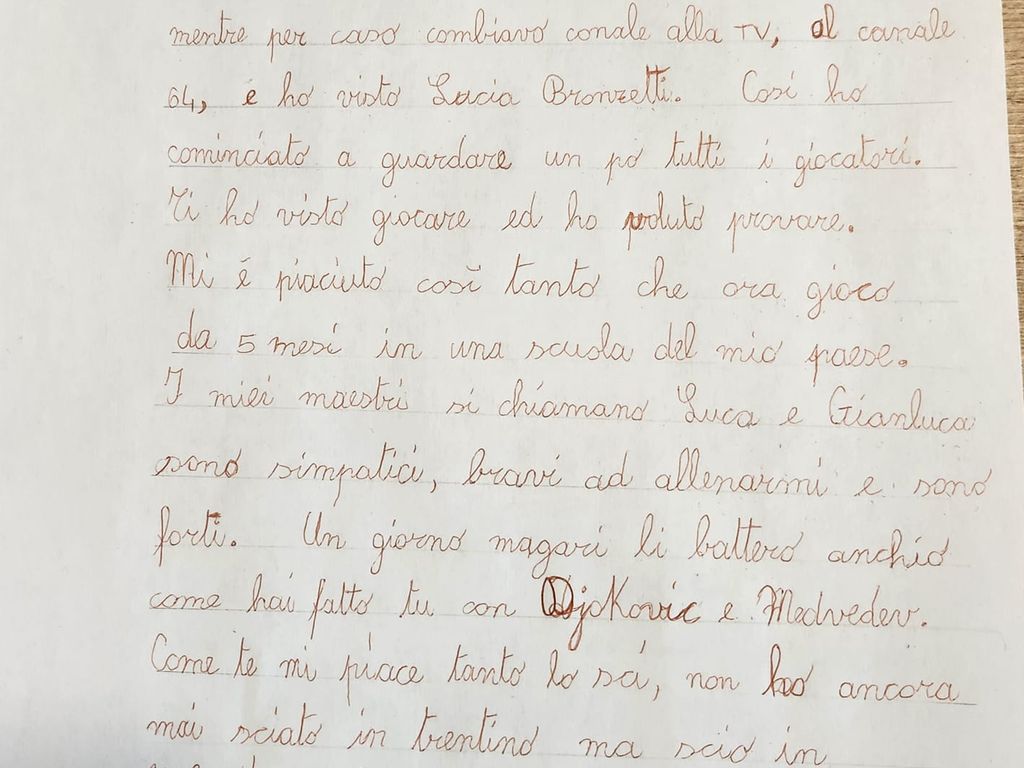 mentre per caso cambiavo canale alla TV, al canale
64, e ho visto Lucia Bronzetti. Così ho
cominciato a guardare un po tutti i giocatori.
Ti ho visto giocare ed ho voluto provare.
Mi è piaciuto così tanto che ora gioco
da 5 mesi in una scuola del mio paese.
I miei maestri si chiamano Luca e Gianluca
sono simpatici, bravi ad allenarmi e sono
forti. Un giorno magari li batterò anchio
come hai fatto tu con Djokovic e Medvedev.
Come te mi piace tanto lo sci, non ho ancora
mai sciato in trentino ma scio in